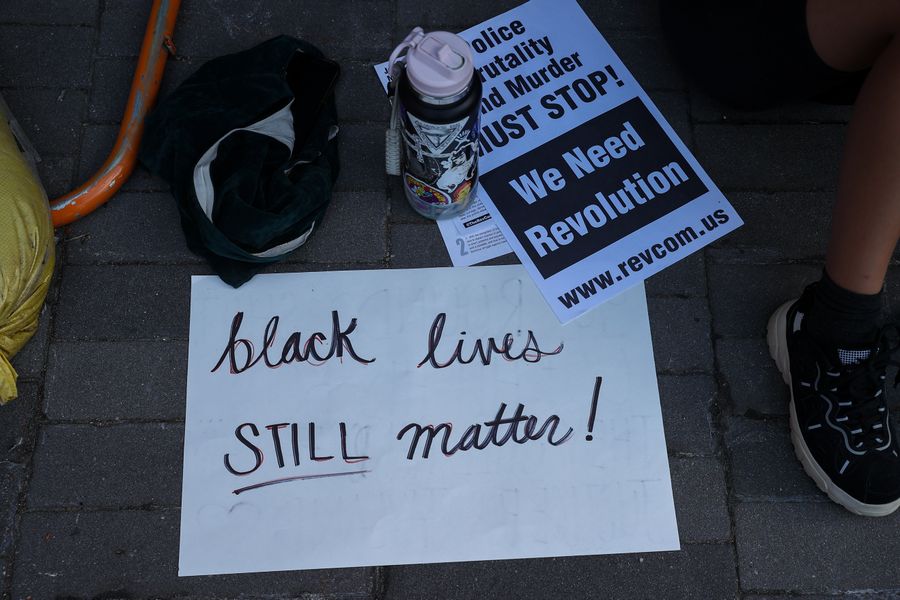 olice
rutality
nd Murder
UST STOP!
We Need
Revolution
www.revcom.us
2
black lives
STILL matter!